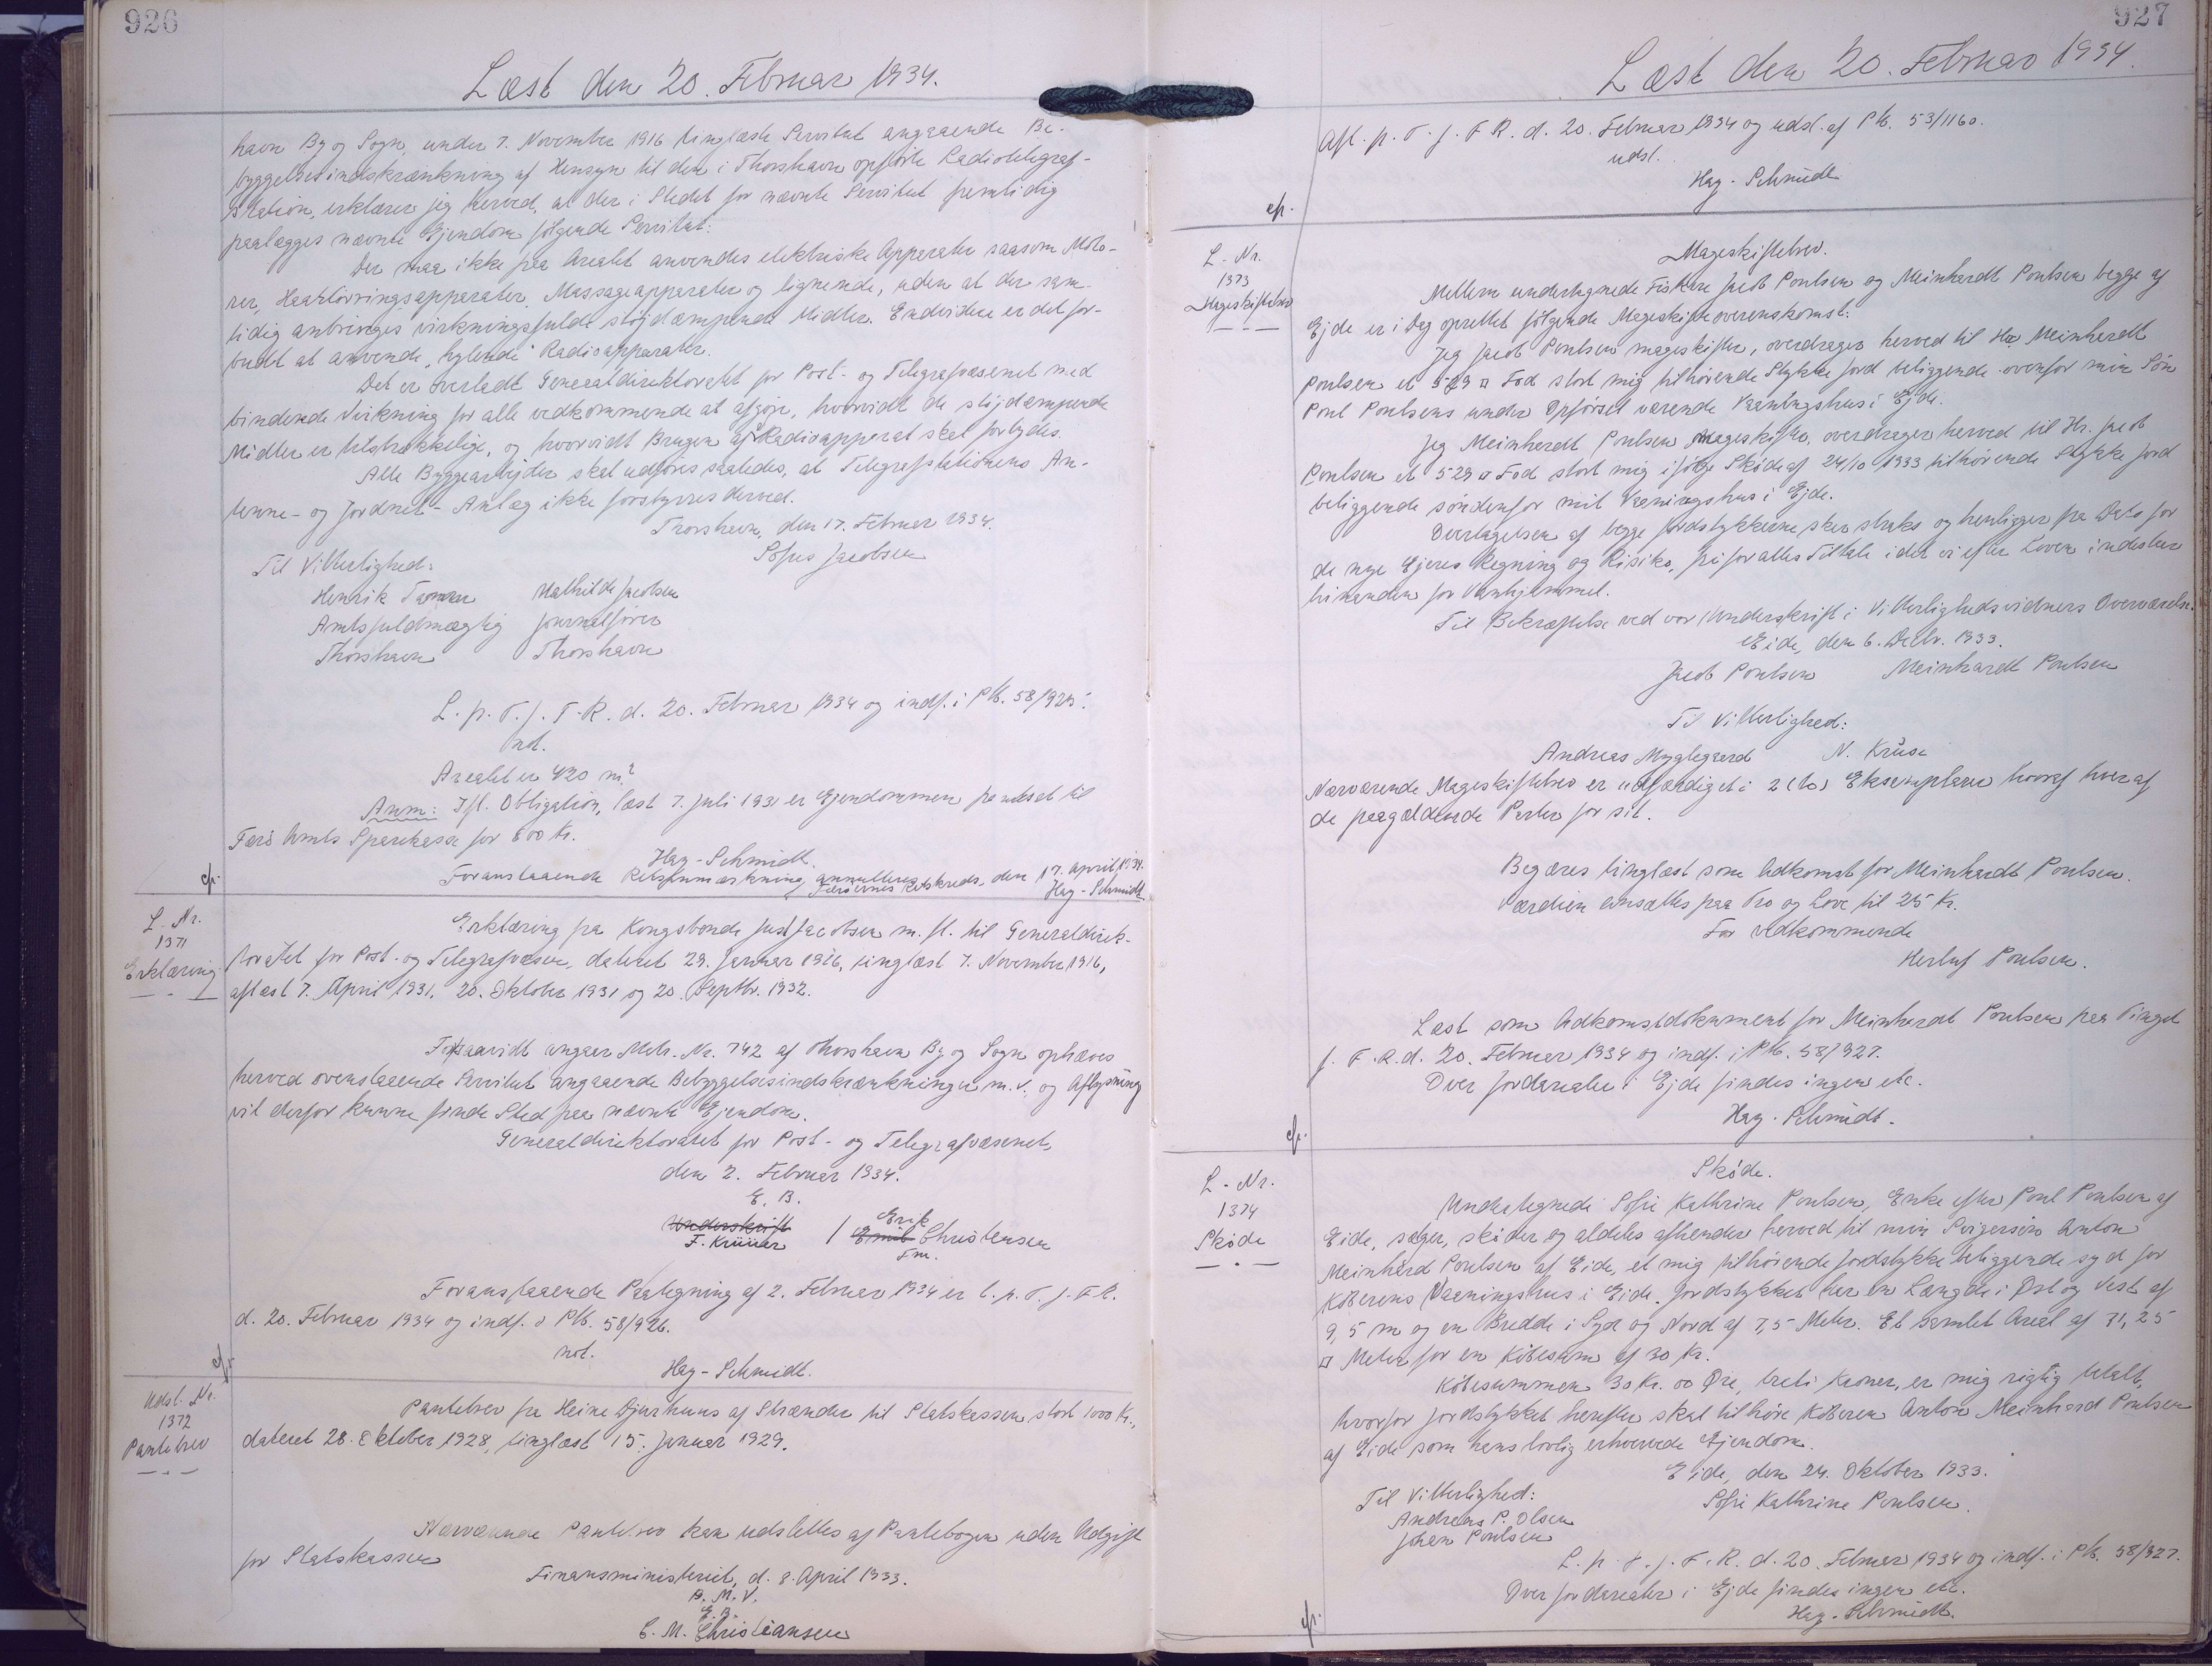 926
Læst den 20. Februar 1934.
havn By og Sogn, under 7. November 1916 tinglæste Servitut angaaende Be-
byggelsesindskrænkning af Hensyn til den i Thorshavn opførte Radiotelegraf-
station, erklærer jeg herved, at der i Stedet for nævnte Servitut fremtidig
paalægges nævnte Ejendom følgende Servitut:
Der maa ikke paa Arealet anvendes elektriske Apparater saasom Moto-
rer, Haartørringsapparater, Massageapparater og lignende, uden at der sam-
tidig anbringes virkningsfulde støjdæmpende Midler. Endvidere er det for-
budt at anvende „hylende“ Radioapparater.
Det er overladt Generaldirektoratet for Post- og Telegrafvæsenet med
bindende Virkning for alle vedkommende at afgøje, hvorvidt de støjdæmpende
Midler er tilstrækkelige, og hvorvidt Brugen af Radioapparat skal forbydes.
Alle Byggearbejder skal udføres saaledes, at Telegrafstationens An-
tenne- og Jordnet-Anlæg ikke forstyrres derved.
Thorshavn, den 17. Februar 1934.
Sofus Jacobsen
Til Vitterlighed:
Henrik Mathilde Jacobsen
Amtsfuldmægtig Journalfører
Thorshavn Thorshavn
L. p. T. f. F. R. d. 20. Februar 1934 og indf. i Pb. 58/925.
not.
Arealet er 420 m²
Anm: Ifl. Obligation, læst 7. Juli 1931 er Ejendommen pantsat til
Færø Amts Sparekasse for 800 Kr.
Hag-Schmidt.
Foranstaaende Retsanmærkning annulleres
Færøernes Retskreds, den 17. April 1934.
Hag-Schmidt
cfr.
L. Nr.
1371
Erklæring
Erklæring fra Kongsbonde Just Jacobsen m. fl. til Generaldirek-
toratet for Post- og Telegrafvæsen, dateret 29. Januar 1916, tinglæst 7. November 1916,
aflæst 7. April 1931, 20. Oktober 1931 og 20. Septbr. 1932.
Forsaavidt angaar Matr. Nr. 742 af Thorshavn By og Sogn ophæves
herved ovenstaaende Servitut angaaende Bebyggelsesindskrænkninger m. v. og Aflysning
vil derfor kunne finde Sted paa nævnte Ejendom.
Generaldirektoratet for Post- og Telegrafvæsenet,
den 2. Februar 1934.
E. B.
Underskrift Erik
F. Krüüer / Emil Christensen
Fm.
Foranstaaende Paategning af 2. Februar 1934 er l. p. T. f. F. R.
d. 20. Februar 1934 og indf. i Pb. 58/926.
not.
Hag-Schmidt.
cfr.
Udsl. Nr.
1372
Pantebrev
Pantebrev fra Heine Djurhuus af Strænder til Statskassen stort 1000 Kr.,
dateret 28. Oktober 1928, tinglæst 15. Januar 1929.
Nærværende Pantebrev kan udslettes af Pantebogen uden Udgift
for Statskassen
Finansministeriet, d. 8. April 1933.
P. M. V.
E. B.
C. M. Christiansen
927
Læst den 20. Februar 1934.
Afl. p. T. f. F. R. d. 20. Februar 1934 og udsl. af Pb. 53/1160.
udsl.
Hag-Schmidt
cfr.
L. Nr.
1373
Mageskiftebrev
Mageskiftebrev.
Mellem undertegnede Fiskere Jacob Poulsen og Meinhardt Poulsen begge af
Ejde er i Dag oprettet følgende Mageskifteoverenskomst:
Jeg Jacob Poulsen mageskifter, overdrager herved til Hr. Meinhardt
Poulsen et 529 □ Fod stort mig tilhørende Stykke Jord beliggende ovenfor min Søn
Poul Poulsens under Opførsel værende Vaaningshus i Ejde.
Jeg Meinhardt Poulsen Mageskifter, overdrager herved til Hr. Jacob
Poulsen et 529 □ Fod stort mig ifølge Skøde af 24/10 1933 tilhørende Stykke Jord
beliggende søndenfor mit Vaaningshus i Ejde.
Overtagelsen af begge Jordstykkerne sker straks og henligger fra Dato for
de nye Ejeres Regning og Risiko, fri for alles Tiltale idet vi efter Loven indestaar
hinanden for Vanhjemmel.
Til Bekræftelse ved vor Underskrift i Vitterlighedsvidners Overværelse.
Eide, den 6. Decbr. 1933.
Jacob Poulsen Meinhardt Poulsen
Til Vitterlighed:
Andreas Myglegaard N. Kruse
Nærværende Mageskiftebrev er udfærdiget i 2 (to) Eksemplarer hvoraf hver af
de paagældende Parter for sit.
Begæres tinglæst som Adkomst for Meinhardt Poulsen.
Værdien ansættes paa Tro og Love til 25 Kr.
For vedkommende
Herluf Poulsen.
Læst som Adkomstdokument for Meinhardt Poulsen paa Tinget
f. F. R. d. 20. Februar 1934 og indf. i Pb. 58/927.
Over Jordarealer i Ejde findes ingen etc.
Hag-Schmidt.
cfr.
L. Nr.
1374
Skøde
Skøde.
Undertegnede Sofie Kathrine Poulsen, Enke efter Poul Poulsen af
Eide, sælger, skøder og aldeles afhender herved til min Svigersøn Anton
Meinhard Poulsen af Eide, et mig tilhørende Jordstykke beliggende syd for
Køberens Vaaningshus i Eide. Jordstykket har en Længde i Øst og Vest af
9,5 m og en Bredde i Syd og Nord af 7,5 Meter. Et samlet Areal af 71,25
□ Meter for en Købesum af 30 Kr.
Købesummen 30 Kr. 00 Øre, treti Kroner, er mig rigtig betalt,
hvorfor Jordstykket herefter skal tilhøre Køberen Anton Meinhard Poulsen
af Eide som hans lovlig erhvervede Ejendom.
Eide, den 24. Oktober 1933.
Til Vitterlighed: Sofie Kathrine Poulsen.
Andreas P. Olsen
Johan Poulsen
L. p. T. f. F. R. d. 20. Februar 1934 og indf. i Pb. 58/927.
Over Jordarealer i Ejde findes ingen etc.
Hag-Schmidt.
cfr.